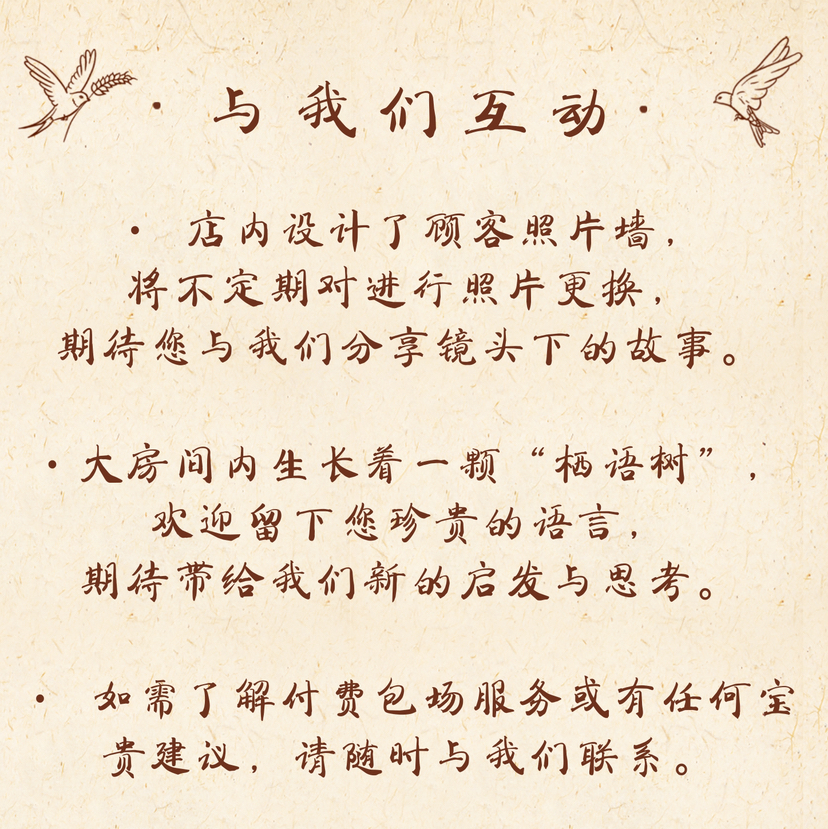 · 与我们互动 ·
· 店内设计了顾客照片墙，
将不定期对进行照片更换，
期待您与我们分享镜头下的故事。
· 大房间内生长着一颗“栖语树”，
欢迎留下您珍贵的语言，
期待带给我们新的启发与思考。
· 如需了解付费包场服务或有任何宝
贵建议，请随时与我们联系。